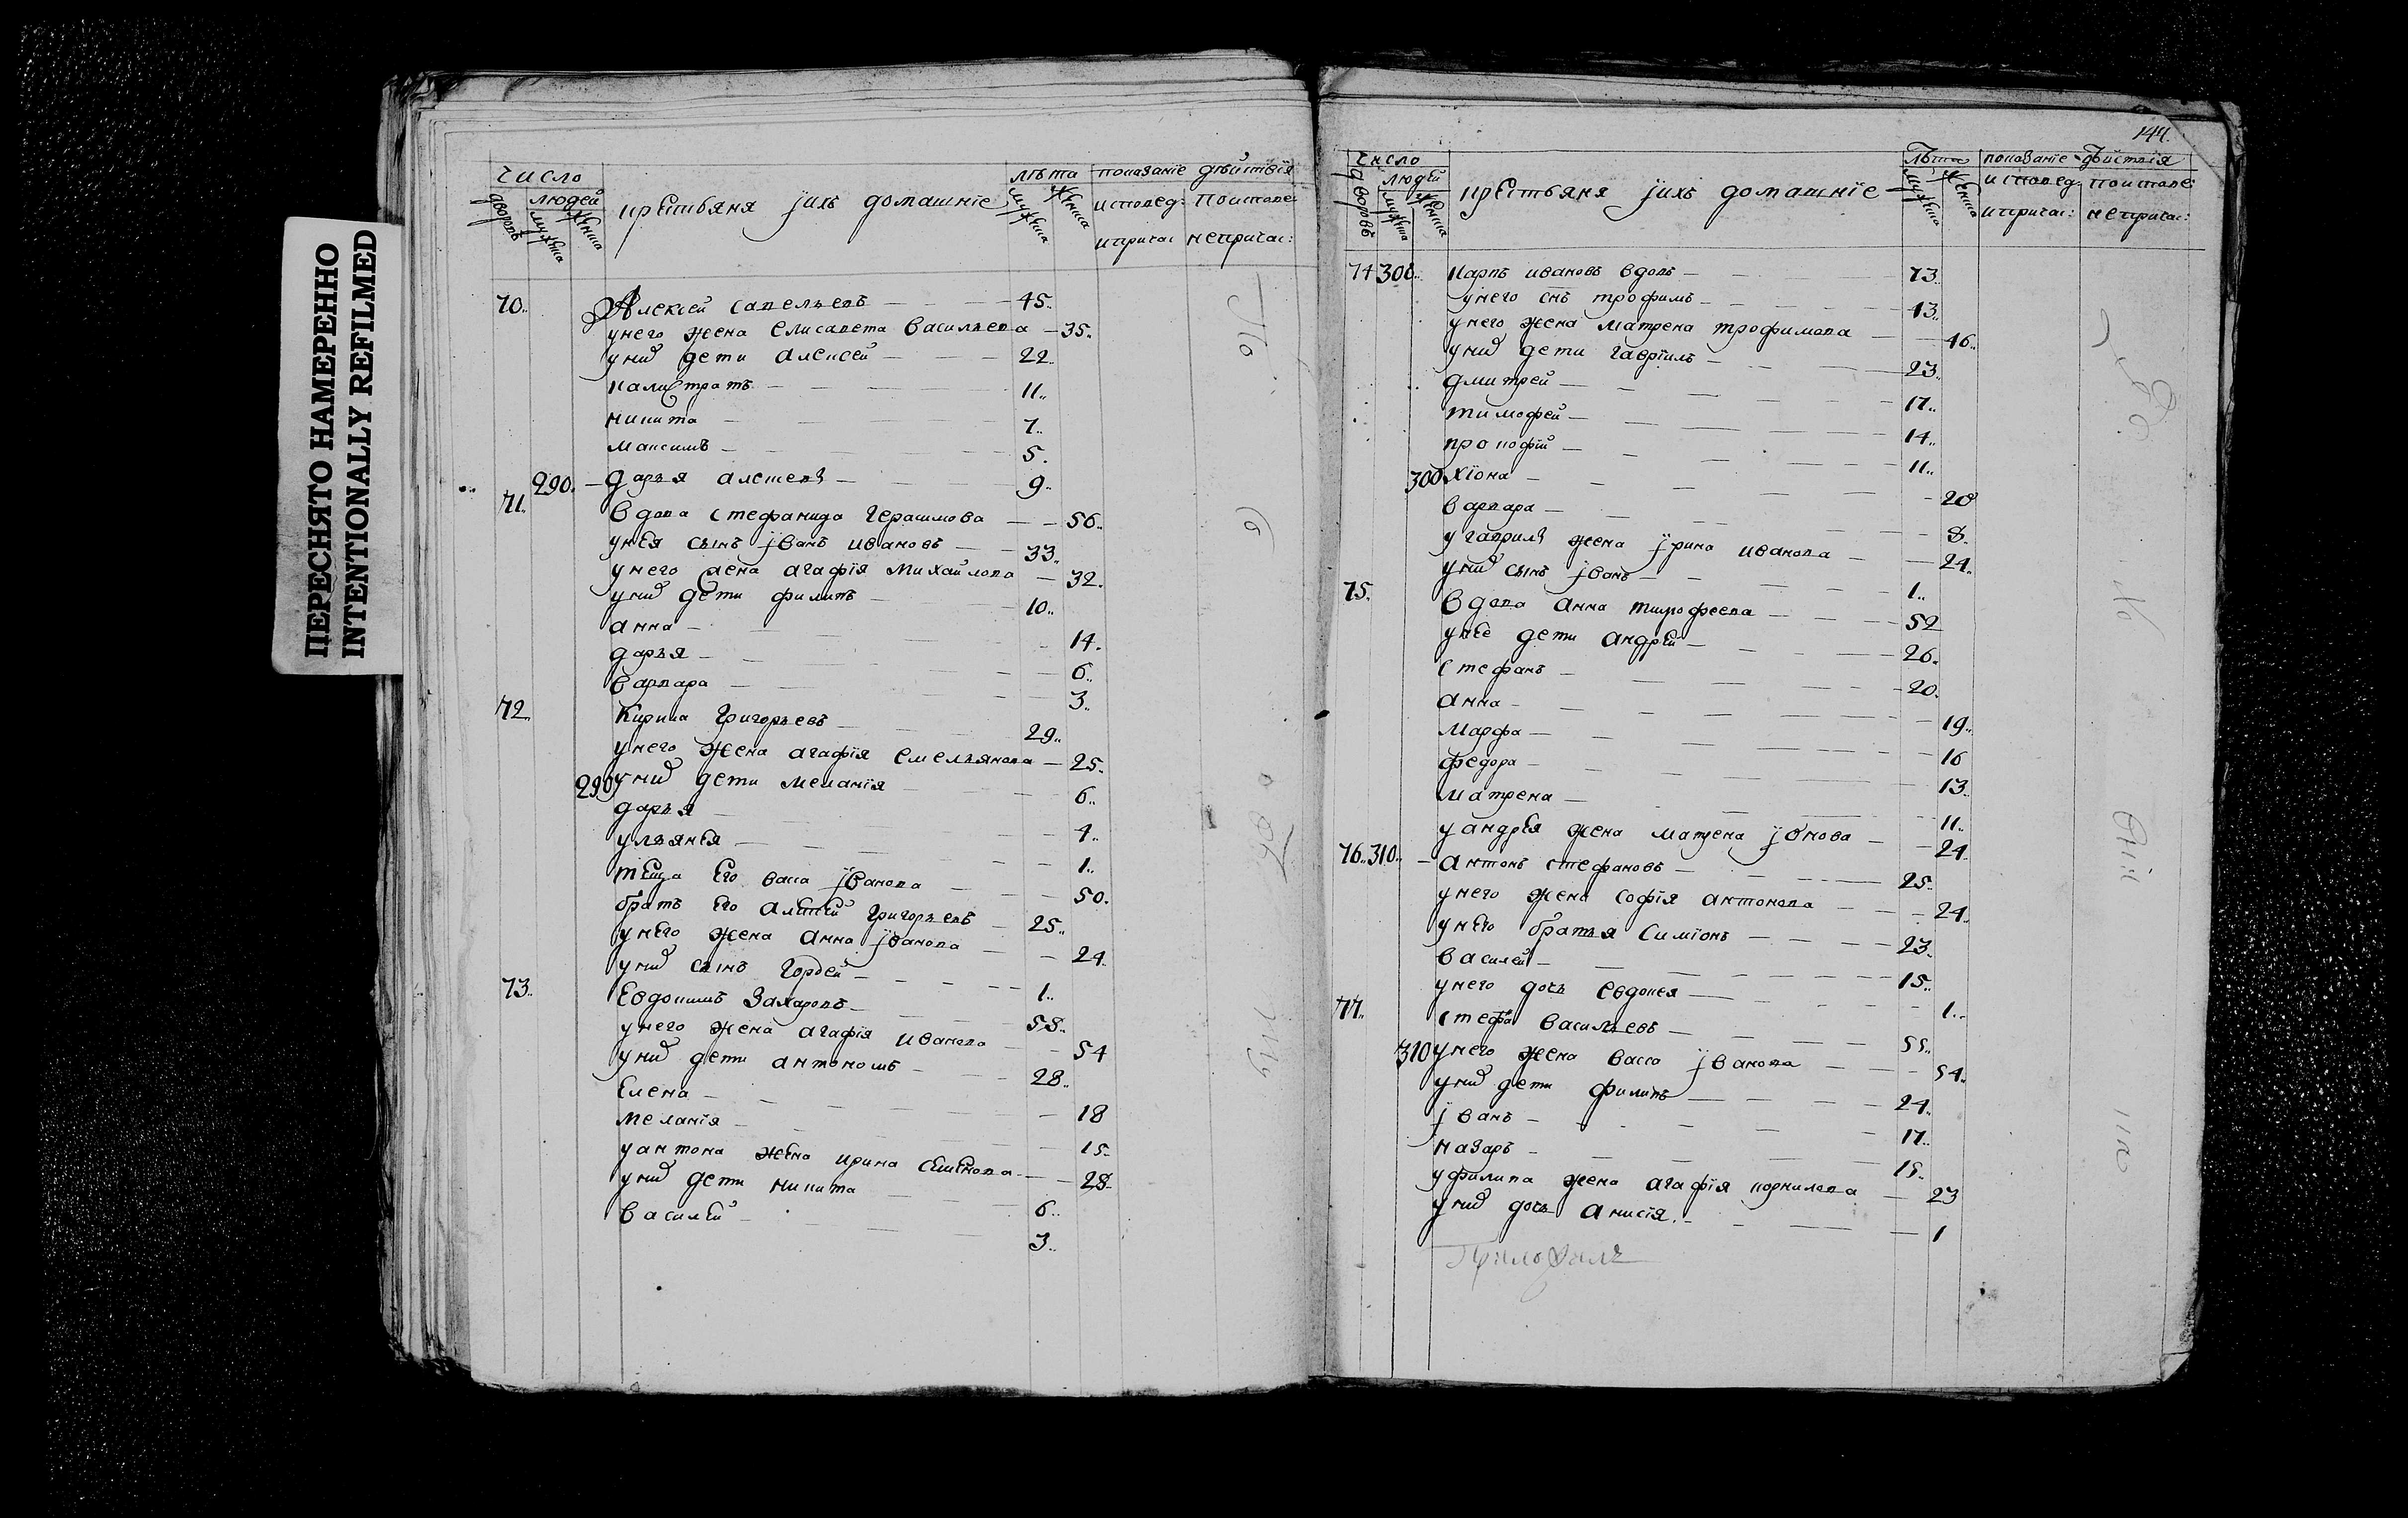 ПЕРЕСНЯТО НАМЕРЕННО
INTENTIONALLY REFILMED
число
людей
дворовъ
мужеска
женска
крестьяня јихъ домашнїе
лѣта
мужеска
женска
показанїе дѣйствїя
исповед: поисповѣ
ипричас непричас:
70.. Алексей савельевъ 45..
унего жена елисавета васильева 35..
уних дети алексей 22..
калистратъ 11..
никита 7..
максимъ 5.
290. дарья алексеева 9..
71.. вдова стефанида герасимова 56..
унея сынъ јванъ ивановъ 33..
унего жена агафїя михайлова 32.
уних дети филипъ 10..
анна 14.
дарья 6..
варвара 3..
72.. Кирила григорьевъ 29..
унего жена агафїя емельянова 25.
290 уних дети меланїя 6..
дарья 4..
ульянея 1..
теща его васса јванова 50.
братъ его алексей григорьевъ 25..
унего жена анна јванова 24.
уних сынъ гордей 1..
73.. Евдокимъ захаровъ 58..
унего жена агафїя иванова 54
уних дети антономъ 28..
Елена 18
меланїя 15.
уантона жена ирина семенова 28
уних дети никита 6..
василей 3..
144.
число
людей
дворовъ
мужеска
женска
крестьяня јихъ домашнїе
лѣта
мужеска
женска
показанїе дѣйствїя
исповед: поисповѣ:
ипричас: непричас:
74 300.. карпъ ивановъ вдовъ 73..
унего снъ трофимъ 43..
унего жена матрена трофимова 46..
уних дети гаврїилъ 23..
дмитрей 17..
тимофей 14..
прокофїй 11..
300 хїона 20
варвара 8.
угаврила жена јрина иванова 24.
уних сынъ јванъ 1..
75. вдова анна тимофеева 52
унее дети андрей 26.
стефанъ 20.
анна 19..
марфа 16
федора 13..
матрена 11..
уандрея жена матрена јонова 24
76.. 310.. антонъ стефановъ 25.
унего жена софїя антонова 24.
унего братья симїонъ 23.
василей 15..
унего дочь евдокея 1..
77.. стефа васильевъ 55..
310 унего жена васса јванова 54.
уних дети филипъ 24.
јванъ 17..
назаръ 15..
уфилипа жена агафїя корнилова 23
уних дочь анисїя. 1